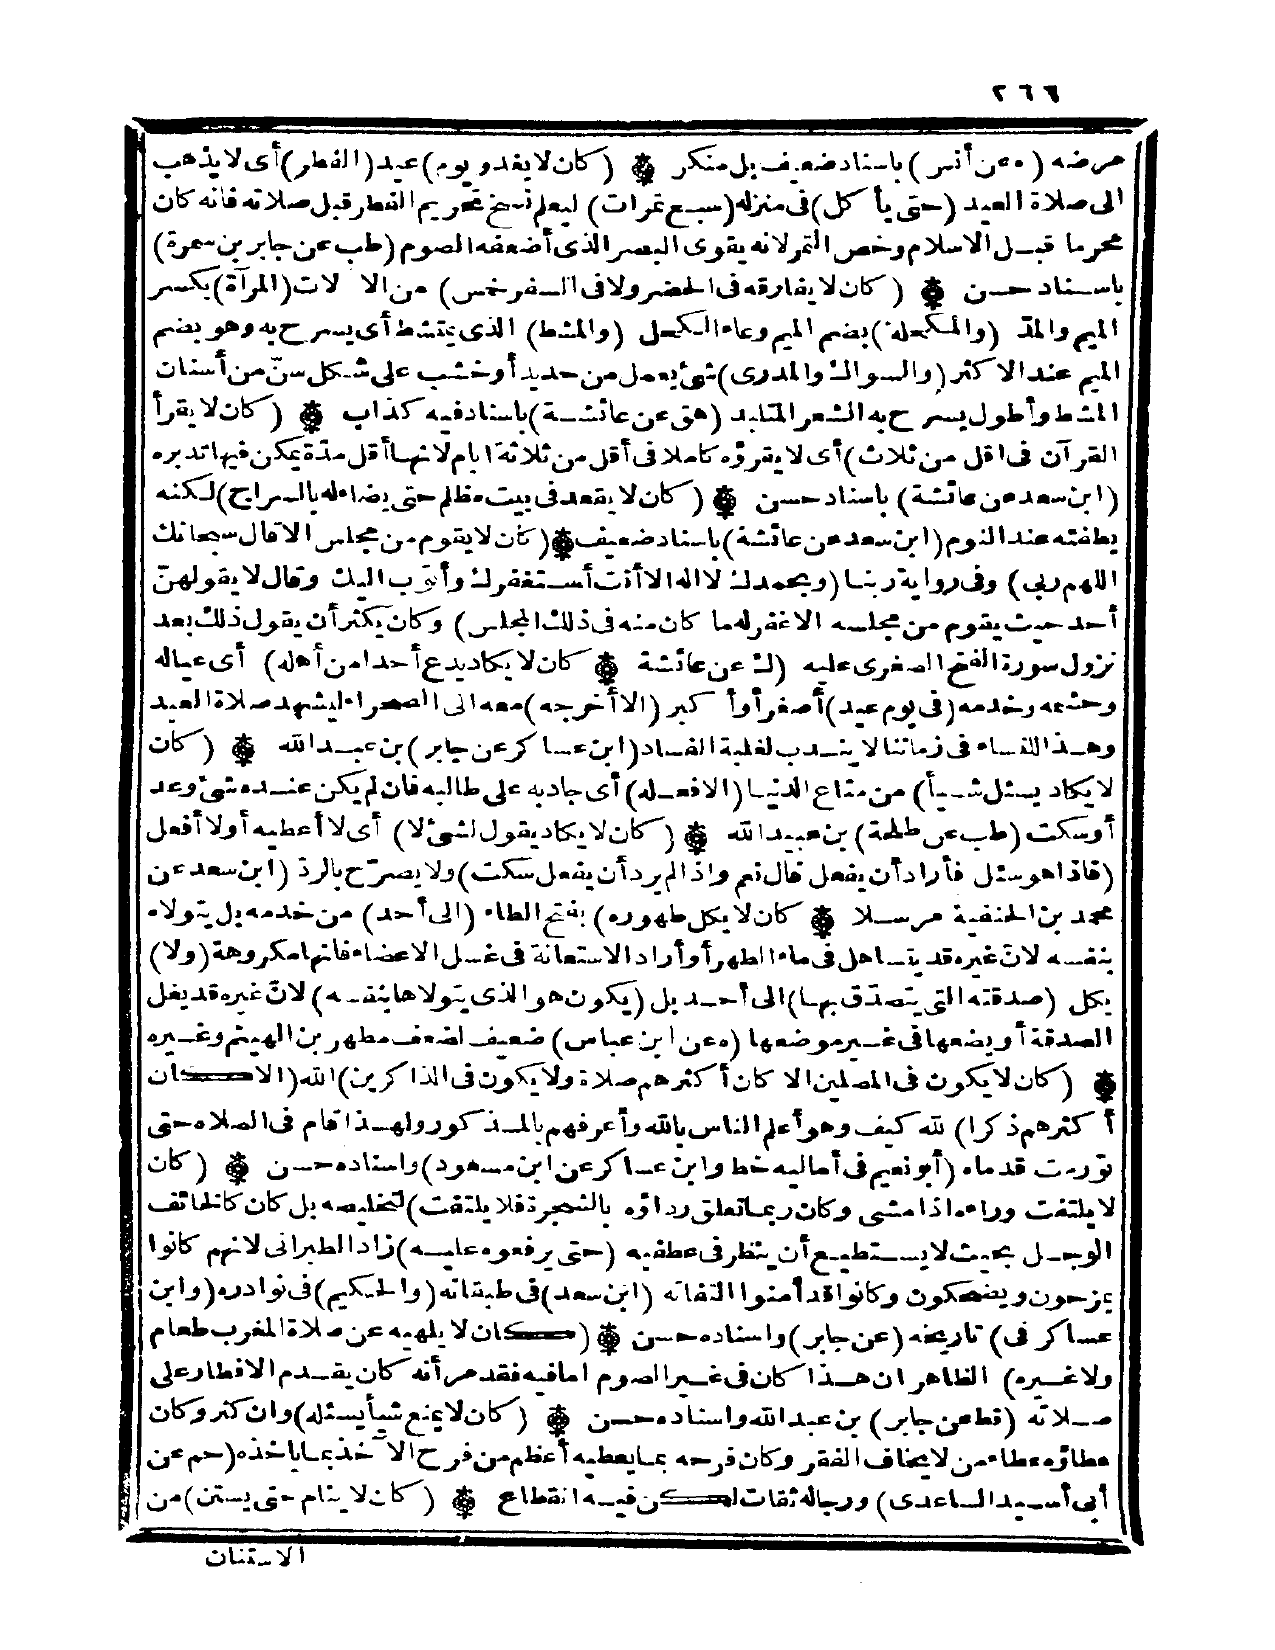 ٢٦٦
مرضه (ه عن أنس) باسناد ضعيف بل منكر ۞ (كان لا يغدو يوم) عيد (الفطر) أى لا يذهب
الى صلاة العيد (حتى يأكل) فى منزله (سبع تمرات) ليعلم نسخ تحريم الفطر قبل صلاته فانه كان
محرما قبل الاسلام وخص التمر لانه يقوى البصر الذى أضعفه الصوم (طب عن جابر بن سمرة)
باسناد حسن ۞ (كان لا يفارقه فى الحضر ولا فى السفر خمس) من الا لات (المرآة) بكسر
الميم والمد (والمكحلة) بضم الميم وعاء الكحل (والمشط) الذى يمتشط أى يسرح به وهو بضم
الميم عند الاكثر (والسواك والمدرى) شئ يعمل من حديد أو خشب على شكل سنّ من أسنان
المشط وأطول يسرح به الشعر المتلبد (هق عن عائشة) باسناد فيه كذاب ۞ (كان لا يقرأ
القرآن فى اقل من ثلاث) أى لا يقرؤه كاملا فى أقل من ثلاثة ايام لانها أقل مدة يمكن فيها تدبره
(ابن سعد عن عائشة) باسناد حسن ۞ (كان لا يقعد فى بيت مظلم حتى يضاء له بالسراج) لكنه
يطفئه عند النوم (ابن سعد عن عائشة) باسناد ضعيف ۞ (كان لا يقوم من مجلس الا قال سبحانك
اللهم ربى) وفى رواية ربنا (وبحمدك لا اله الا أنت أستغفرك وأتوب اليك وقال لا يقولهنّ
أحد حيث يقوم من مجلسه الا غفر له ما كان منه فى ذلك المجلس) وكان يكثر أن يقول ذلك بعد
نزول سورة الفتح الصغرى عليه (ك عن عائشة ۞ كان لا يكاد يدع أحدا من أهله) أى عياله
وحشمه وخدمه (فى يوم عيد) أصغر أو أكبر (الا أخرجه) معه الى الصحراء ليشهد صلاة العيد
وهذا للنساء فى زماننا لا يندب لغلبة الفساد (ابن عساكر عن جابر) بن عبد الله ۞ (كان
لا يكاد يسئل شيأ) من متاع الدنيا (الا فعله) أى جاد به على طالبه فان لم يكن عنده شئ وعد
أو سكت (طب عن طلحة) بن عبيد الله ۞ (كان لا يكاد يقول لشئ لا) أى لا أعطيه أو لا أفعل
(فاذا هو سئل فأراد أن يفعل قال نعم واذا لم يرد أن يفعل سكت) ولا يصرّح بالردّ (ابن سعد عن
محمد بن الحنفية مرسلا ۞ كان لا يكل طهوره) بفتح الطاء (الى أحد) من خدمه بل يتولاه
بنفسه لانّ غيره قد يتساهل فى ماء الطهر أو أراد الاستعانة فى غسل الاعضاء فانها مكروهة (ولا)
يكل (صدقته التى يتصدّق بها) الى أحد بل (يكون هو الذى يتولاها بنفسه) لانّ غيره قد يغل
الصدقة أو يضعها فى غير موضعها (ه عن ابن عباس) ضعيف لضعف مطهر بن الهيثم وغيره
۞ (كان لا يكون فى المصلين الا كان أكثرهم صلاة ولا يكون فى الذاكرين) الله (الا كان
أكثرهم ذكرا) لله كيف وهو أعلم الناس بالله وأعرفهم بالمذكور ولهذا قام فى الصلاه حتى
تورمت قدماه (أبو نعيم فى أماليه خط وابن عساكر عن ابن مسعود) واسناده حسن ۞ (كان
لا يلتفت وراءه اذا مشى وكان ربما تعلق رداؤه بالشجرة فلا يلتفت) لتخليصه بل كان كالخائف
الوجل بحيث لا يستطيع أن ينظر فى عطفيه (حتى يرفعوه عليه) زاد الطبرانى لانهم كانوا
يمزحون ويضحكون وكانوا قد أمنوا التفاته (ابن سعد) فى طبقاته (والحكيم) فى نوادره (وابن
عساكر فى) تاريخه (عن جابر) واسناده حسن ۞ (كان لا يلهيه عن صلاة المغرب طعام
ولا غيره) الظاهر ان هذا كان فى غير الصوم امافيه فقد مر أنه كان يقدم الافطار على
صلاته (قط عن جابر) بن عبد الله واسناده حسن ۞ (كان لا يمنع شيأ يسئله) وان كثر وكان
عطاؤه عطاء من لا يخاف الفقر وكان فرحه بما يعطيه أعظم من فرح الآخذ بما ياخذه (حم عن
أبى أسيد الساعدى) ورجاله ثقات لكن فيه انقطاع ۞ (كان لا ينام حتى يستن) من
الاستنان